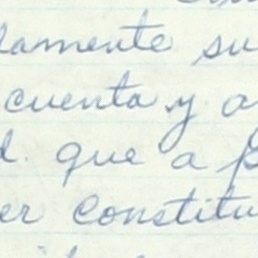 lamente su
cuenta y a
d. que a p
er constitu